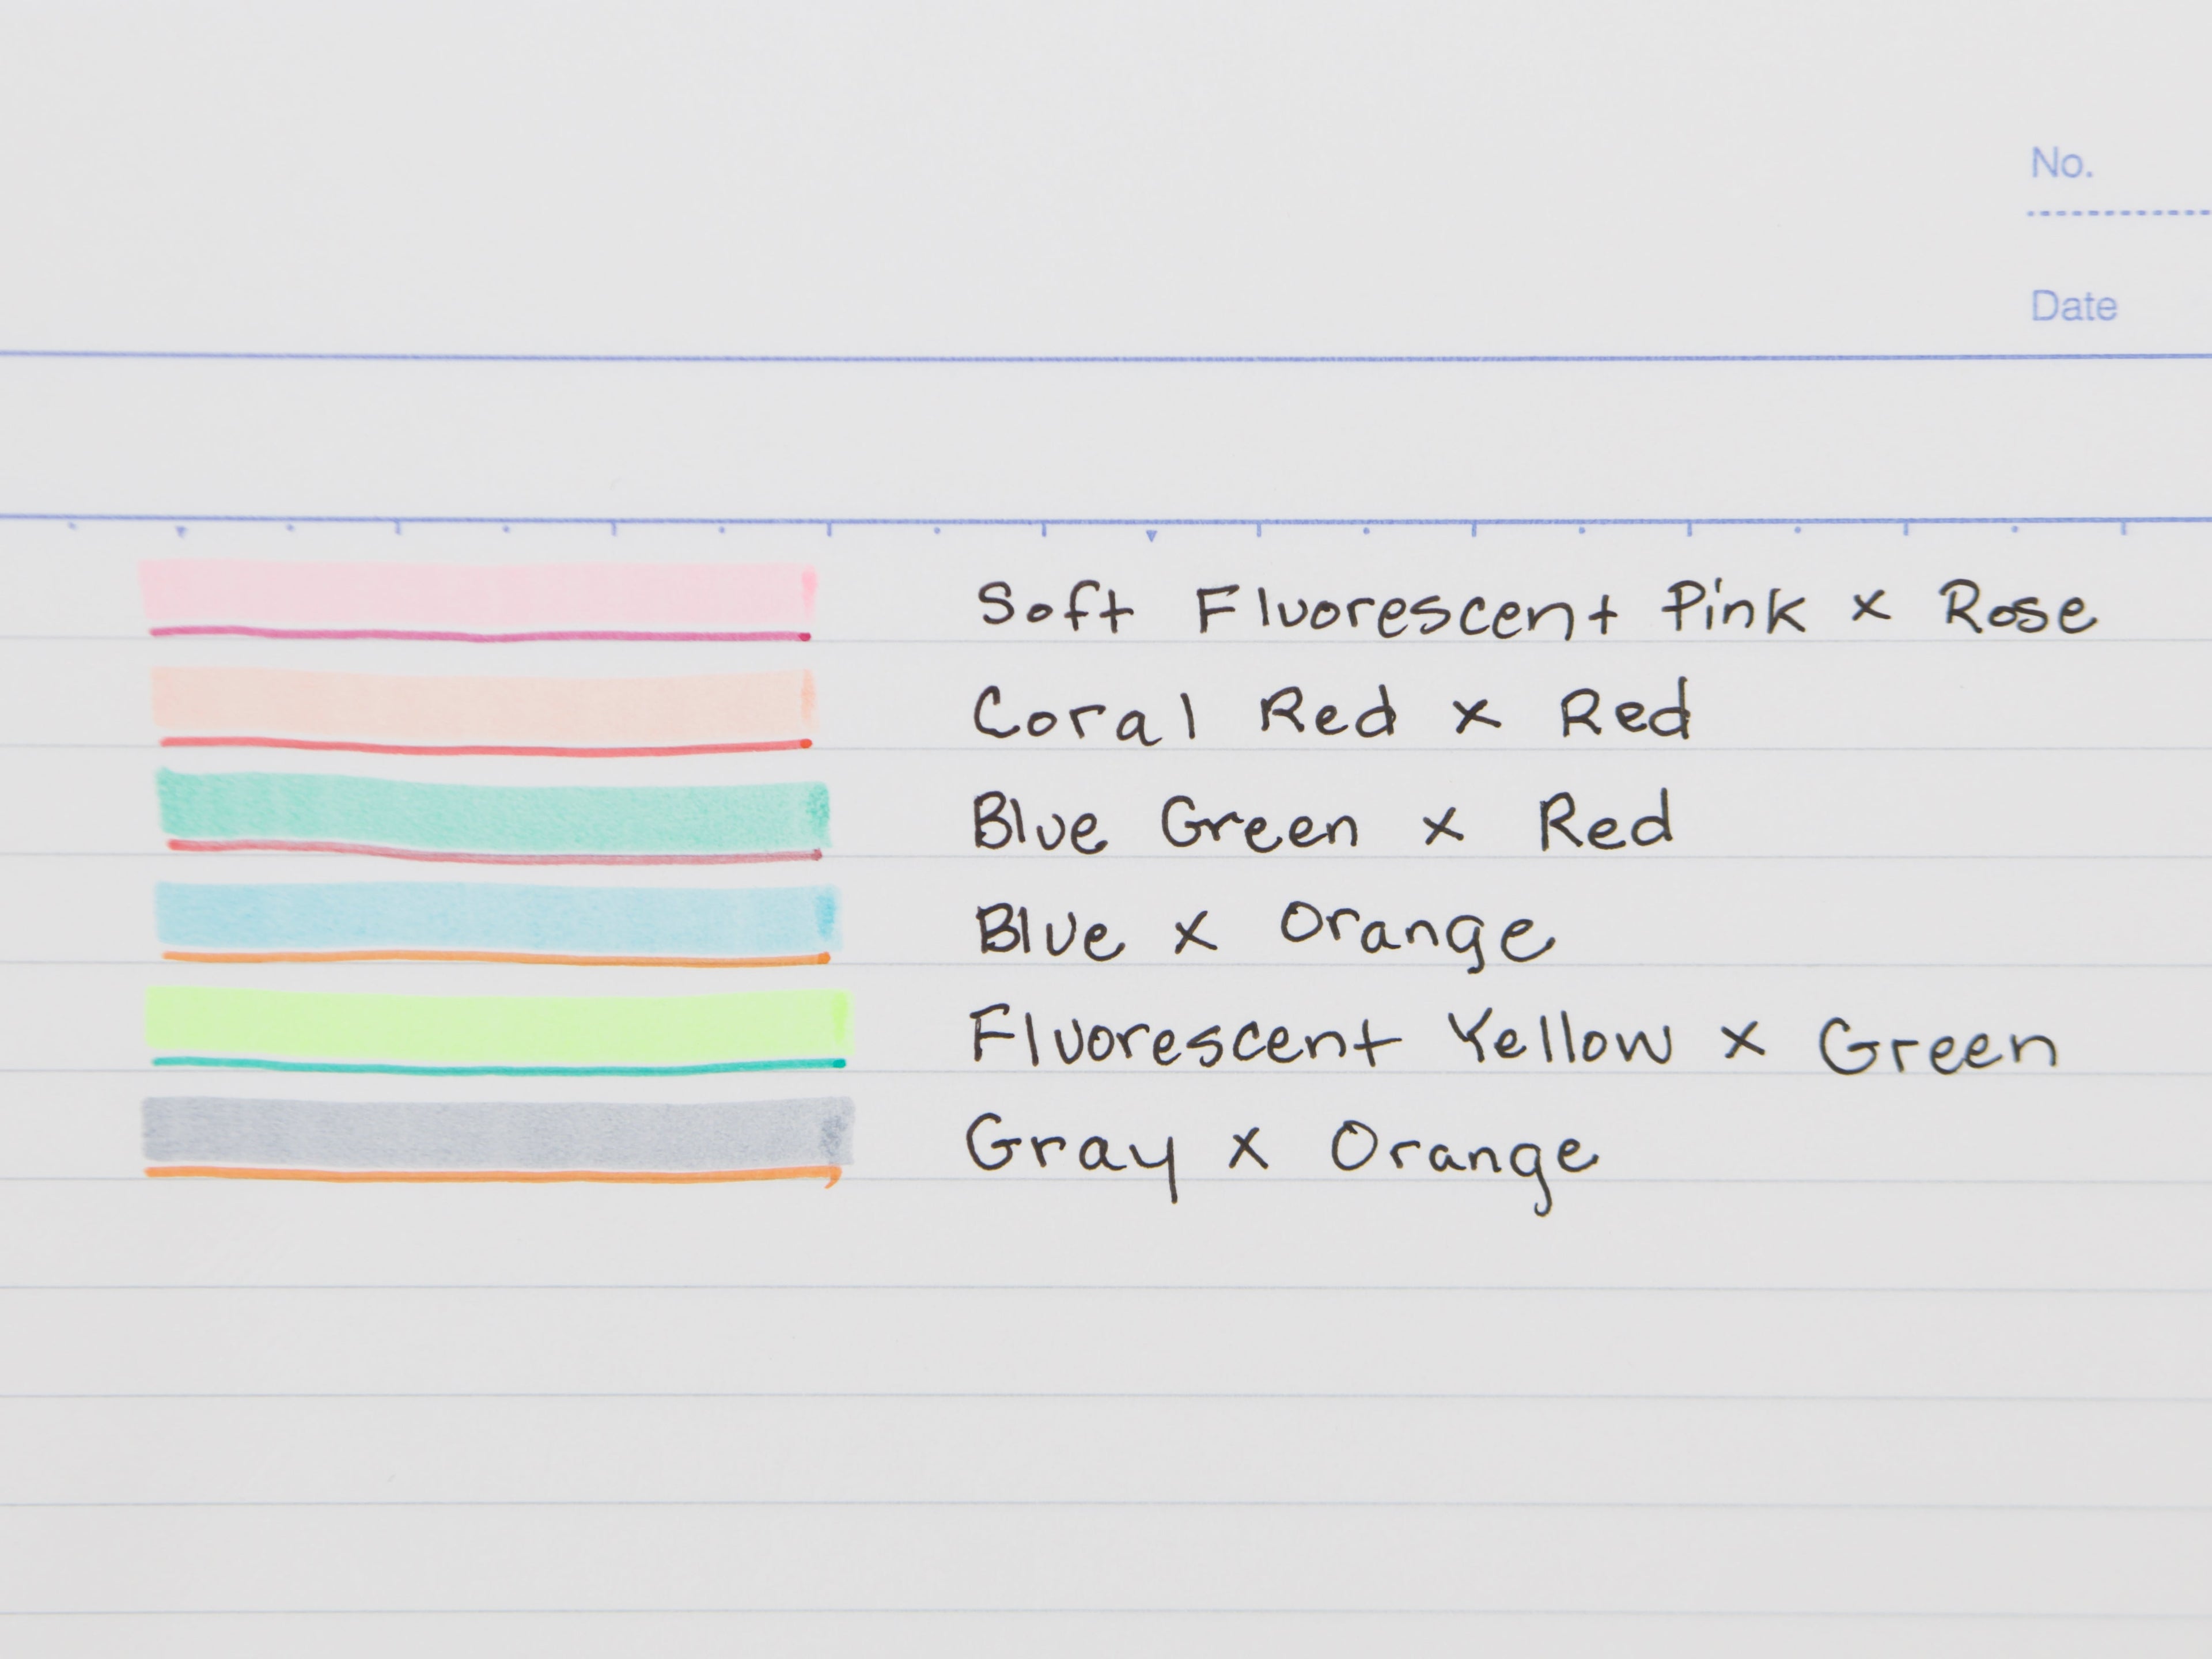 No.
Date
Soft Fluorescent Pink x Rose
Coral Red x Red
Blue Green x Red
Blue x Orange
Fluorescent Yellow x Green
Gray x Orange